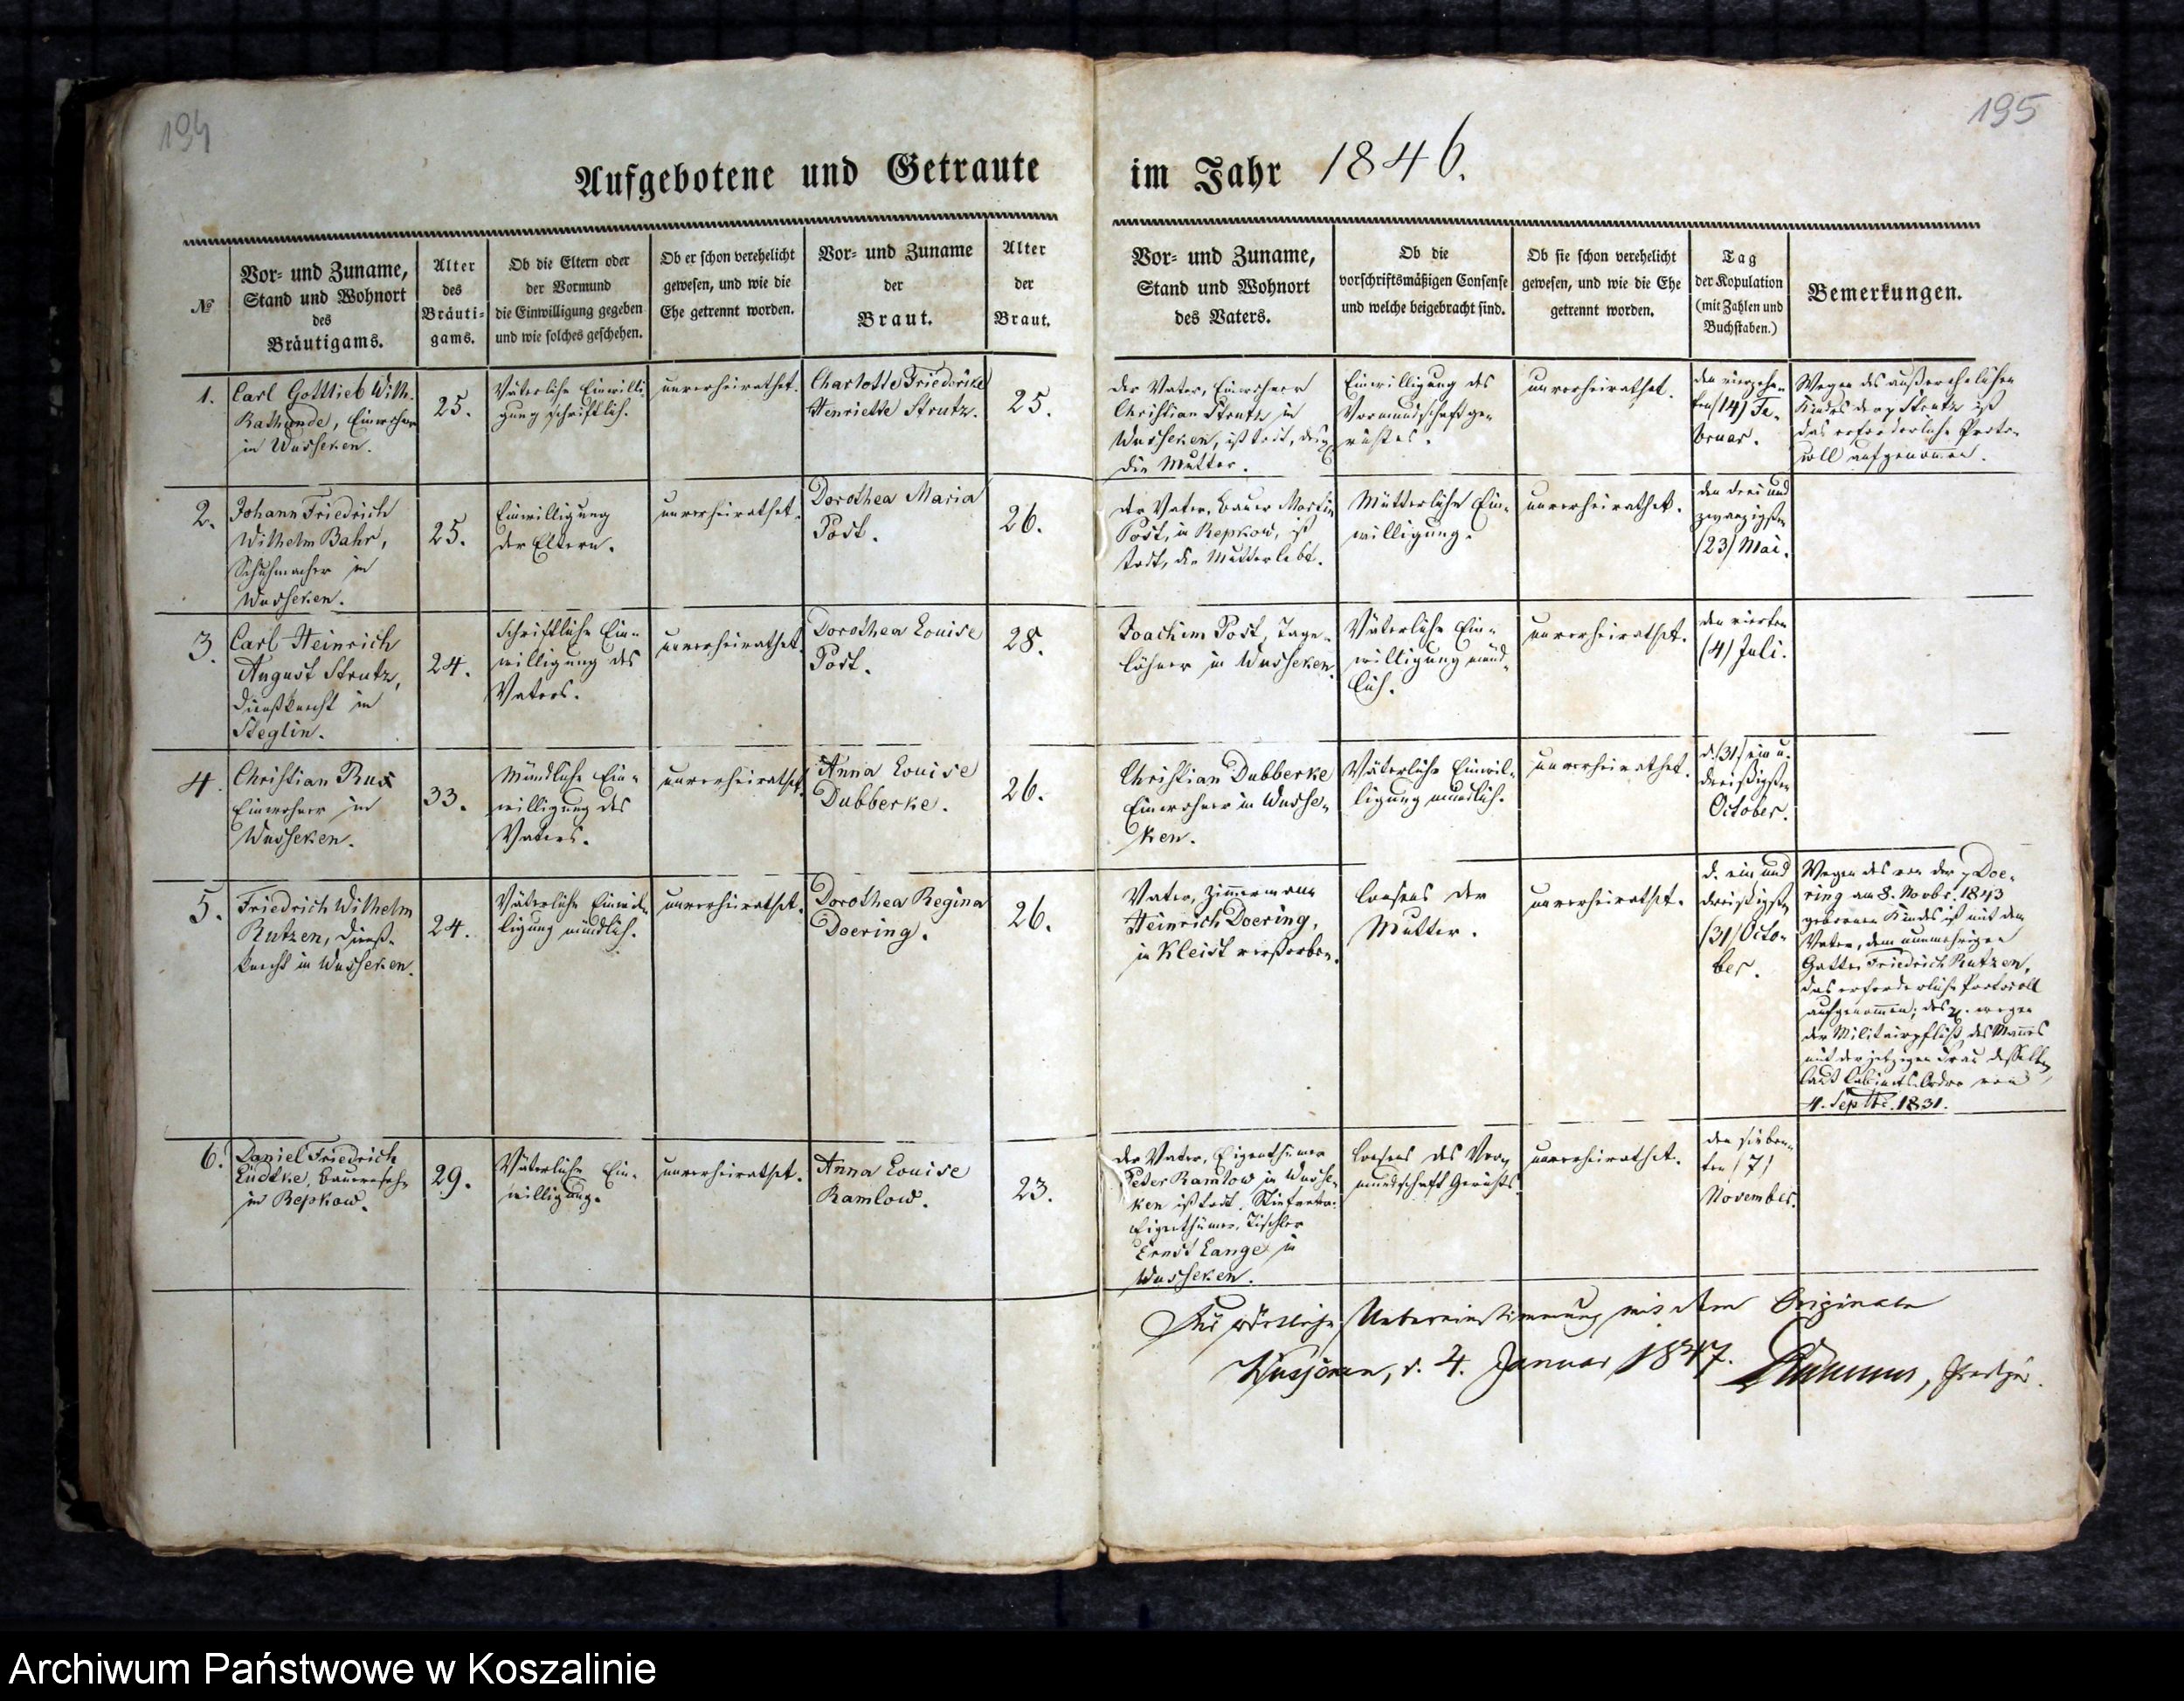 194
195
Aufgebotene und Getraute im Jahr 1846.
№
Vor- und Zuname,
Stand und Wohnort
des
Bräutigams.
Alter
des
Bräuti-
gams.
Ob die Eltern oder
der Vormund
die Einwilligung gegeben
und wie solches geschehen.
Ob er schon verehelicht
gewesen, und wie die
Ehe getrennt worden.
Vor- und Zuname
der
Braut.
Alter
der
Braut.
Vor- und Zuname,
Stand und Wohnort
des Vaters.
Ob die
vorschriftsmäßigen Consense
und welche beigebracht sind.
Ob sie schon verehelicht
gewesen, und wie die Ehe
getrennt worden.
Tag
der Kopulation
(mit Zahlen und
Buchstaben.)
Bemerkungen.
1.
Carl Gottlieb Wilh.
Rathunde, Einwohner
in Wusseken.
25.
Väterliche Einwilli-
gung schriftlich.
unverheirathet.
Charlotte Friederike
Henriette Strutz.
25.
der Vater, Einwohner
Christian Strutz in
Wusseken, ist todt,
die Mutter.
Einwilligung des
Vormundschaftge-
richtes.
unverheirathet.
den vierzehn-
ten (14) Fe-
bruar.
Wegen des außerehelichen
Kindes der Strutz ist
das erforderliche Proto-
coll aufgenommen.
2.
Johann Friedrich
Wilhelm Bahr,
Schuhmacher in
Wusseken.
25.
Einwilligung
der Eltern.
unverheirathet.
Dorothea Maria
Post.
26.
der Vater, Bauer Martin
Post, in Repkow, ist
todt, die Mutter lebt.
Mütterliche Ein-
willigung.
unverheirathet.
den drei und
zwanzigsten
(23) Mai.
3.
Carl Heinrich
August Strutz,
Dienstknecht in
Steglin.
24.
Schriftliche Ein-
willigung des
Vaters.
unverheirathet.
Dorothea Louise
Post.
28.
Joachim Post, Tage-
löhner in Wusseken.
Väterliche Ein-
willigung münd-
lich.
unverheirathet.
den vierten
(4) Juli.
4.
Christian
Einwohner in
Wusseken.
33.
Mündliche Ein-
willigung des
Vaters.
unverheirathet.
Anna Louise
Dubberke.
26.
Christian Dubberke
Einwohner in Wusse-
ken.
Väterliche Einwil-
ligung mündlich.
unverheirathet.
d. (31) ein u.
dreißigsten
October.
5.
Friedrich Wilhelm
Rutzen, Dienst-
knecht in Wusseken.
24.
Väterliche Einwil-
ligung mündlich.
unverheirathet.
Dorothea Regina
Doering.
26.
Vater, Zimmermann
Heinrich Doering,
in Kleist verstorben.
Consens der
Mutter.
unverheirathet.
d. ein und
dreißigsten
(31) Octo-
ber.
Wegen des von der Doe-
ring am 8. Novbr. 1843
geborenen Kindes ist mit dem
Vater, dem nunmehrigen
Gatten Friedrich Rutzen,
das erforderliche Protocoll
aufgenommen; wegen
der Militairpflicht des Mannes
mit der jetzigen Frau desselben
laut Cabinets-Ordre vom
4. Septbr. 1831.
6.
Daniel Friedrich
Lüdtke, Bauernsohn
in Repkow.
29.
Väterliche Ein-
willigung.
unverheirathet.
Anna Louise
Ramlow.
23.
der Vater, Eigenthümer
Peter Ramlow in Wusse-
ken ist todt. Stiefvater
Eigenthümer, Tischler
Ernst Lange in
Wusseken.
Consens des Vor-
mundschaft Gerichts.
unverheirathet.
den sieben-
ten (7)
November.
Für wörtliche Uebereinstimmung mit dem Originale
Wusseken, d. 4. Januar 1847. Prediger.
Archiwum Państwowe w Koszalinie